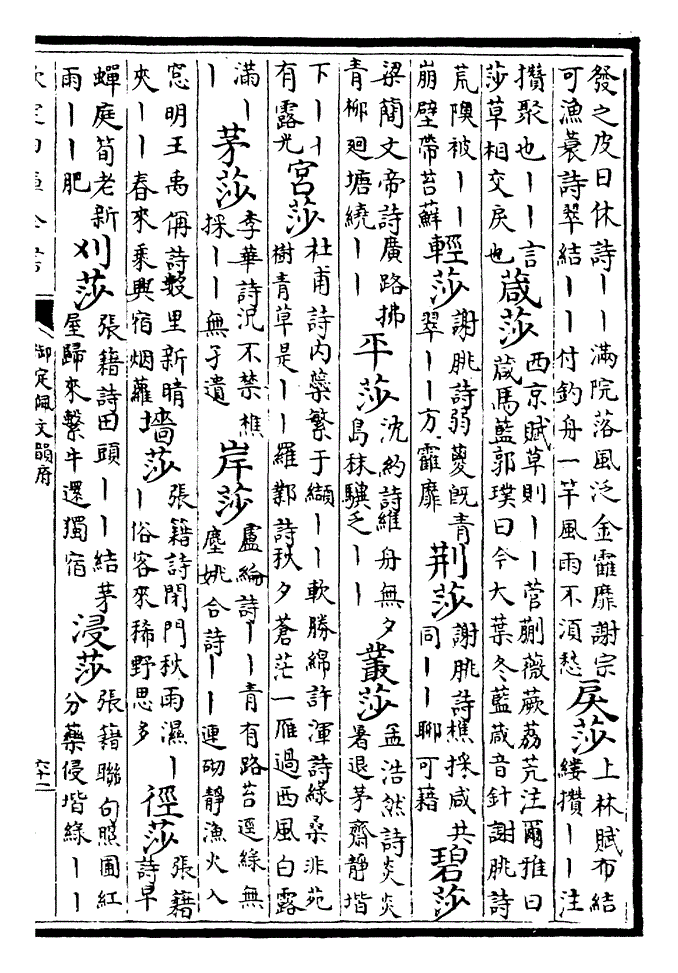 發之皮日休詩丨丨滿院落風泛金靃靡謝宗
可漁蓑詩翠結丨丨付釣舟一竿風雨不須愁
戾莎
上林賦布結
縷攢丨丨注
攢聚也丨丨言
莎草相交戾也
葴莎
西京賦草則丨丨菅蒯薇蕨荔艽注爾雅曰
葴馬藍郭璞曰今大葉冬藍葴音針謝朓詩
荒隩被丨丨
崩壁帶苔蘚
輕莎
謝朓詩弱葽既青
翠丨丨方靃靡
荆莎
謝朓詩樵採咸共
同丨丨聊可藉
碧莎
梁簡文帝詩廣路拂
青柳廻塘繞丨丨
平莎
沈約詩維舟無夕
島秣驥乏丨丨
叢莎
孟浩然詩炎炎
暑退茅齋靜堦
下丨丨
有露光
宮莎
杜甫詩内蘂繁于纈丨丨軟勝綿許渾詩緑桑非苑
樹青草是丨丨羅鄴詩秋夕蒼茫一雁過西風白露
滿丨
丨
茅莎
李華詩況不禁樵
採丨丨無孑遺
岸莎
盧綸詩丨丨青有路苔逕綠無
塵姚合詩丨丨連砌靜漁火入
窓明王禹偁詩數里新晴
夾丨丨春來乘興宿烟蘿
墻莎
張籍詩閉門秋雨濕丨
丨俗客來稀野思多
徑莎
張籍
詩早
蟬庭筍老新
雨丨丨肥
刈莎
張籍詩田頭丨丨結茅
屋歸來繫牛還獨宿
浸莎
張籍聯句照圃紅
分藥侵堦綠丨丨
御定佩文韻府
六十二